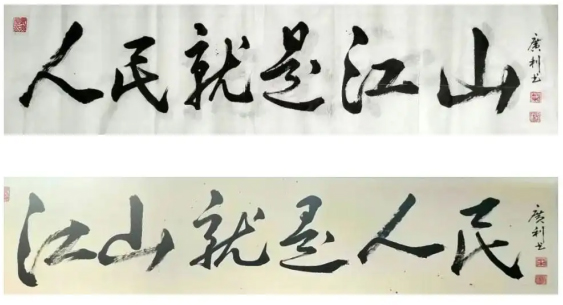 人民就是江山
廣利书
江山就是人民
廣利书